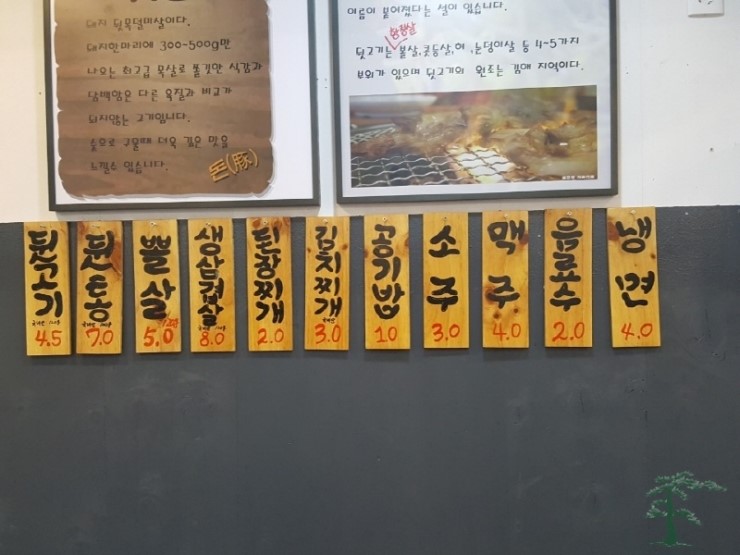 돼지 뒷목덜미살이다.
돼지한마리에 300~500g만
나오는 최고급 목살로 쫄깃한 식감과
담백함은 다른 육질과 비교가
되지않는 고기입니다.
숯으로 구울때 더욱 깊은 맛을
느낄수 있습니다.
돈(豚)
이름이 붙어졌다는 설이 있습니다.
뒷고기는 볼살,콧등살,혀,눈덩이살 등 4~5가지
부위가 있으며 뒷고기의 원조는 김해 지역이다.
뒷고기 4.5
뒷통 7.0
뽈살 5.0
생삼겹살 8.0
된장찌개 2.0
김치찌개 3.0
공기밥 1.0
소주 3.0
맥주 4.0
음료수 2.0
냉면 4.0